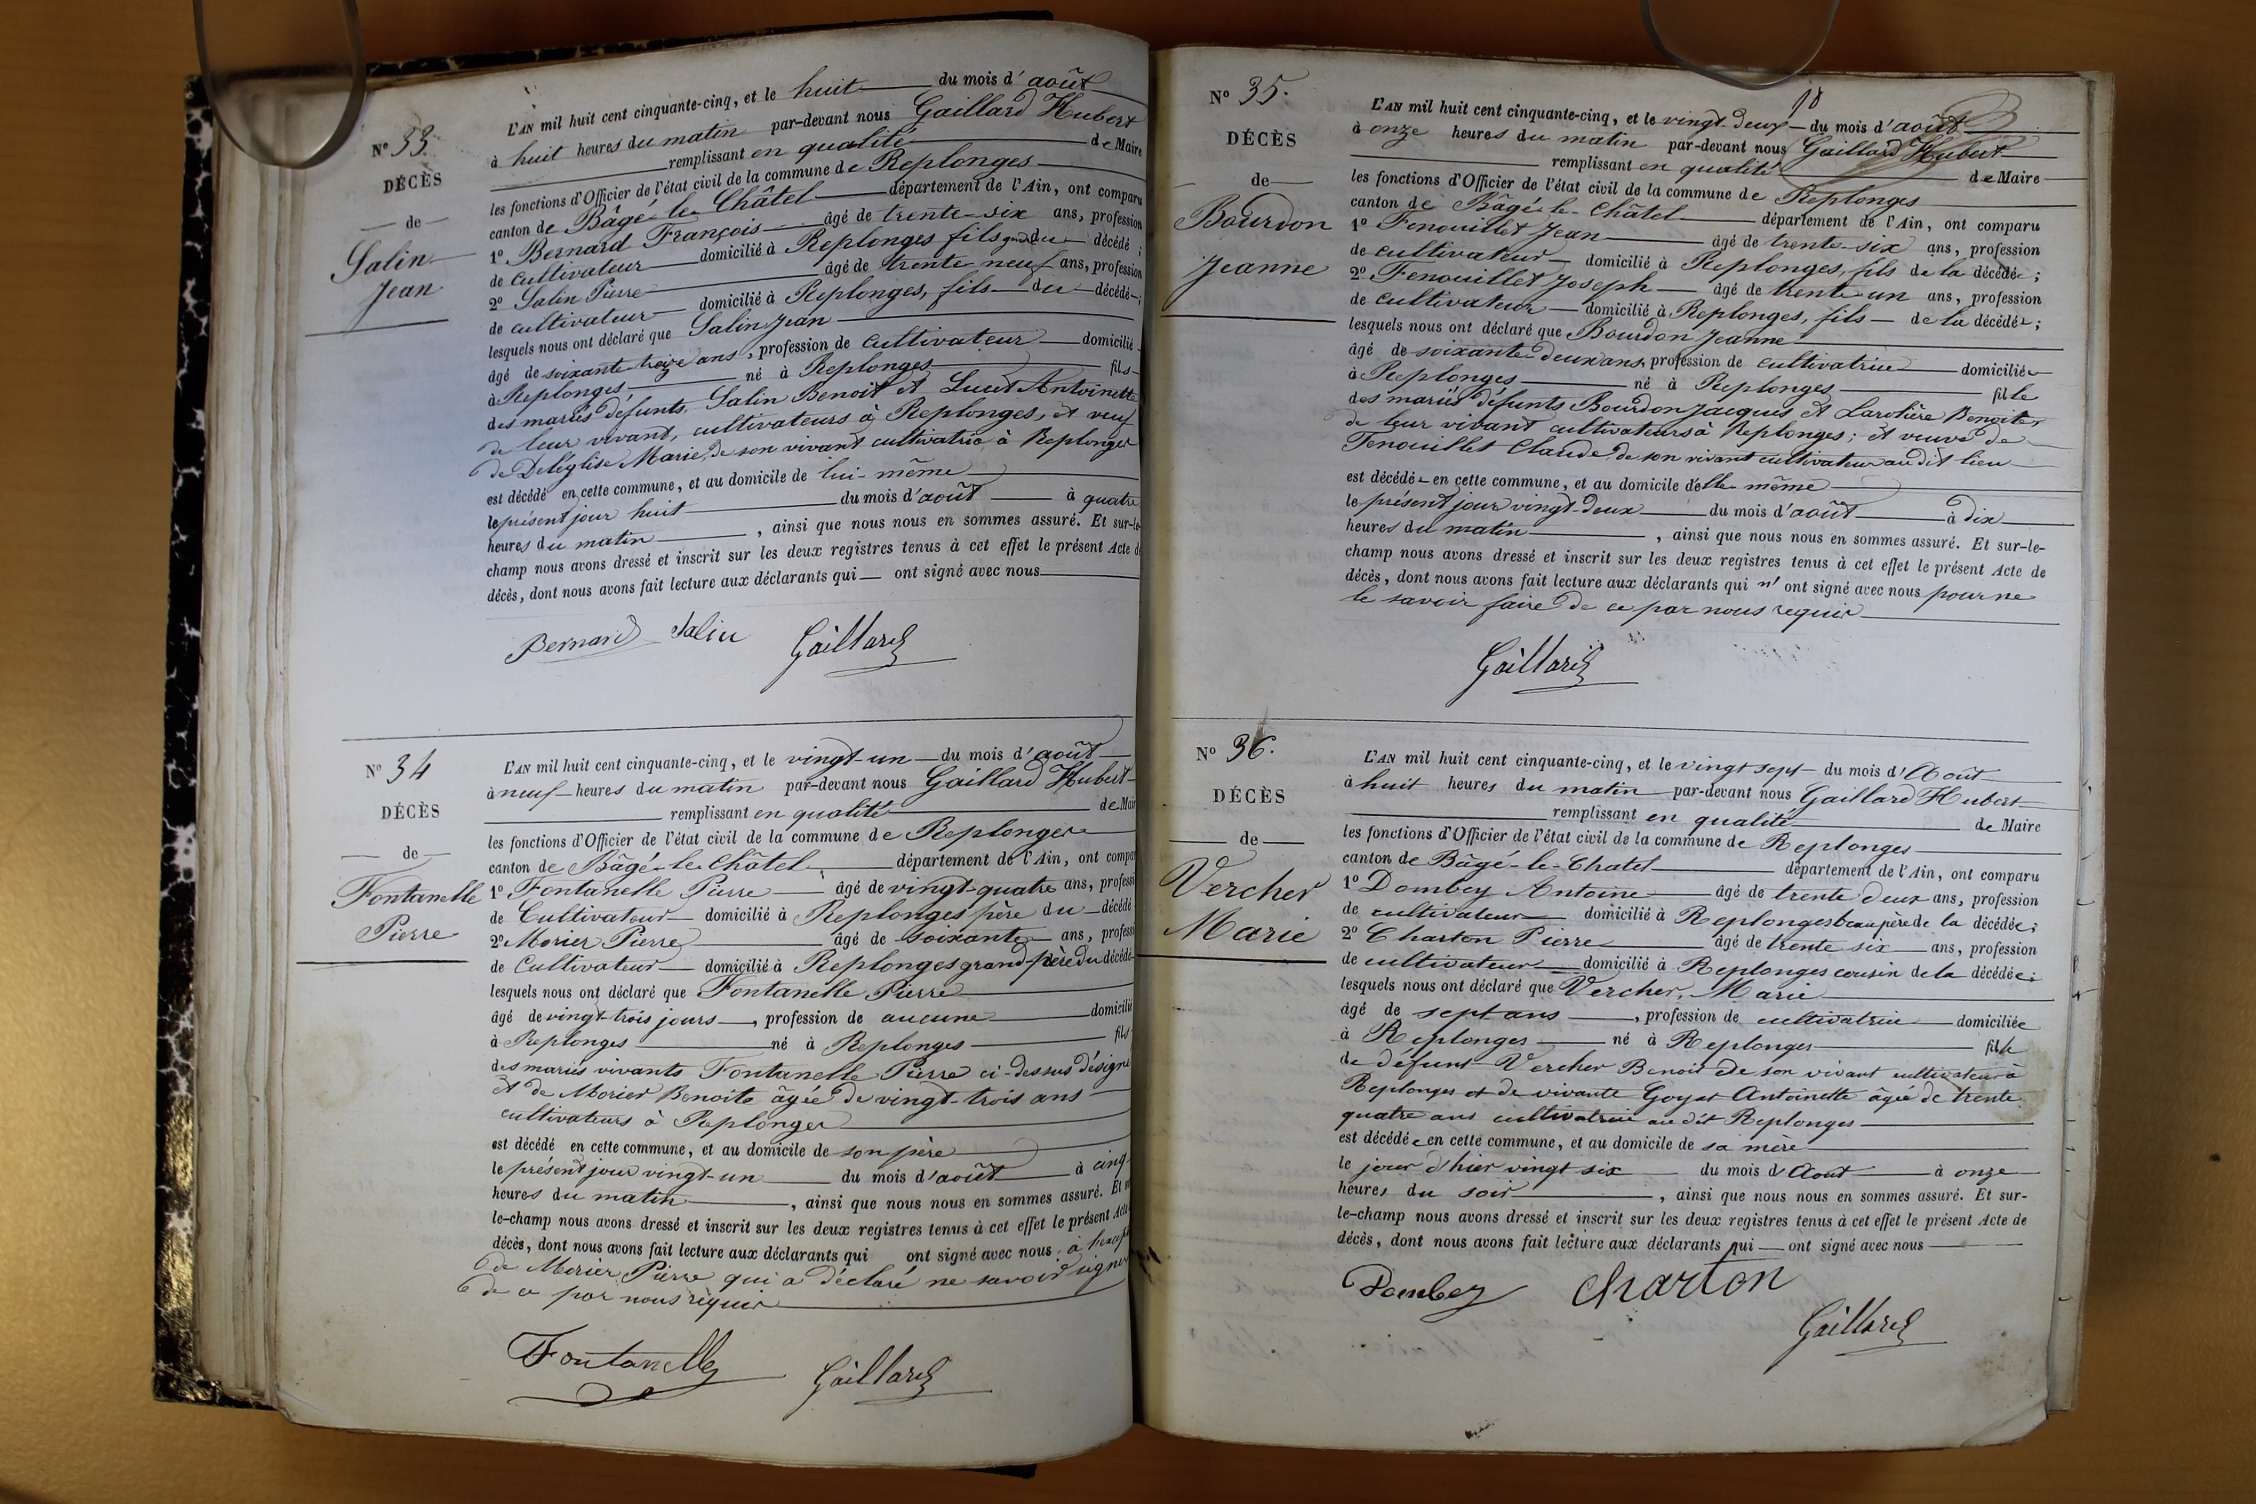 N° 33.
DÉCÈS
de
Salin
Jean
L'AN mil huit cent cinquante-cinq, et le huit du mois d'août
à huit heures du matin par-devant nous Gaillard Hubert
remplissant en qualité de Maire
les fonctions d'Officier de l'état civil de la commune de Replonges
canton de Bâgé-le-Châtel département de l'Ain, ont comparu
1° Bernard François âgé de trente-six ans, profession
de cultivateur domicilié à Replonges fils du décédé;
2° Salin Pierre âgé de trente neuf ans, profession
de cultivateur domicilié à Replonges, fils du décédé;
lesquels nous ont déclaré que Salin Jean
âgé de soixante treize ans, profession de cultivateur domicilié
à Replonges né à Replonges fils
des mariés défunts, Salin Benoit et Antoinette
de leur vivant, cultivateurs à Replonges, et veuf
de Deléglise Marie, de son vivant cultivatrice à Replonges
est décédé en cette commune, et au domicile de lui-même
le présent jour huit du mois d'août à quatre
heures du matin, ainsi que nous nous en sommes assuré. Et sur-le-
champ nous avons dressé et inscrit sur les deux registres tenus à cet effet le présent Acte de
décès, dont nous avons fait lecture aux déclarants qui ont signé avec nous
Bernard Salin Gaillard
N° 34
DÉCÈS
de
Fontanelle
Pierre
L'AN mil huit cent cinquante-cinq, et le vingt-un du mois d'août
à neuf heures du matin par-devant nous Gaillard Hubert
remplissant en qualité de Mair
les fonctions d'Officier de l'état civil de la commune de Replonges
canton de Bâgé-le-Châtel, département de l'Ain, ont compar
1° Fontanelle Pierre âgé de vingt-quatre ans, professi
de Cultivateur domicilié à Replonges père du décédé
2° Morier Pierre âgé de soixante ans, professi
de Cultivateur domicilié à Replonges grand-père du décédé
lesquels nous ont déclaré que Fontanelle Pierre
âgé de vingt-trois jours, profession de aucune domicilié
à Replonges né à Replonges fils
des mariés vivants Fontanelle Pierre ci-dessus désigné
et de Morier Benoite âgée de vingt-trois ans
cultivateurs à Replonges
est décédé en cette commune, et au domicile de son père
le présent jour vingt-un du mois d'août à cinq
heures du matin, ainsi que nous nous en sommes assuré. Et
le-champ nous avons dressé et inscrit sur les deux registres tenus à cet effet le présent Acte
décès, dont nous avons fait lecture aux déclarants qui ont signé avec nous à
de Morier Pierre qui a déclaré ne savoir signer
de ce par nous requis
Fontanelle Gaillard
18
N° 35.
DÉCÈS
de
Bourdon
Jeanne
L'AN mil huit cent cinquante-cinq, et le vingt-deux du mois d'août
à onze heures du matin par-devant nous Gaillard Hubert
remplissant en qualité de Maire
les fonctions d'Officier de l'état civil de la commune de Replonges
canton de Bâgé-le-Châtel département de l'Ain, ont comparu
1° Fenouillet Jean âgé de trente-six ans, profession
de cultivateur domicilié à Replonges, fils de la décédée;
2° Fenouillet Joseph âgé de trente-un ans, profession
de cultivateur domicilié à Replonges, fils de la décédée;
lesquels nous ont déclaré que Bourdon Jeanne
âgé de soixante-deux ans, profession de cultivatrice domiciliée
à Replonges né à Replonges fille
des mariés défunts Bourdon Jacques et Larotière Benoite,
de leur vivant cultivateurs à Replonges; et veuve de
Fenouillet Claude, de son vivant cultivateur au dit lieu
est décédée en cette commune, et au domicile d'elle-même
le présent jour vingt-deux du mois d'août à dix
heures du matin, ainsi que nous nous en sommes assuré. Et sur-le-
champ nous avons dressé et inscrit sur les deux registres tenus à cet effet le présent Acte de
décès, dont nous avons fait lecture aux déclarants qui n'ont signé avec nous pour ne
le savoir faire de ce par nous requis
Gaillard
N° 36.
DÉCÈS
de
Vercher
Marie
L'AN mil huit cent cinquante-cinq, et le vingt sept du mois d'Août
à huit heures du matin par-devant nous Gaillard Hubert
remplissant en qualité de Maire
les fonctions d'Officier de l'état civil de la commune de Replonges
canton de Bâgé-le-Chatel département de l'Ain, ont comparu
1° Dombey Antoine âgé de trente deux ans, profession
de cultivateur domicilié à Replonges beau père de la décédée;
2° Charton Pierre âgé de trente six ans, profession
de cultivateur domicilié à Replonges cousin de la décédée;
lesquels nous ont déclaré que Vercher, Marie
âgé de sept ans, profession de cultivatrice domiciliée
à Replonges né à Replonges fille
de défunt Vercher Benoit de son vivant cultivateur à
Replonges et de vivante Goyat Antoinette âgée de trente
quatre ans cultivatrice au dit Replonges
est décédée en cette commune, et au domicile de sa mère
le jour d'hier vingt six du mois d'Aout à onze
heures du soir, ainsi que nous nous en sommes assuré. Et sur-
le-champ nous avons dressé et inscrit sur les deux registres tenus à cet effet le présent Acte de
décès, dont nous avons fait lecture aux déclarants qui ont signé avec nous
Dombey Charton
Gaillard